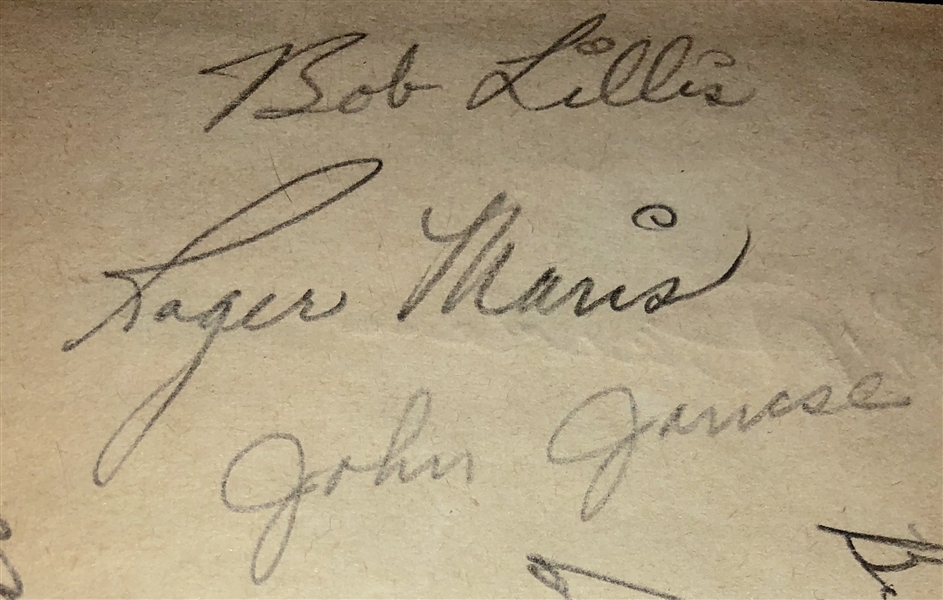 Bob Lillis
Roger Maris
John Jancse